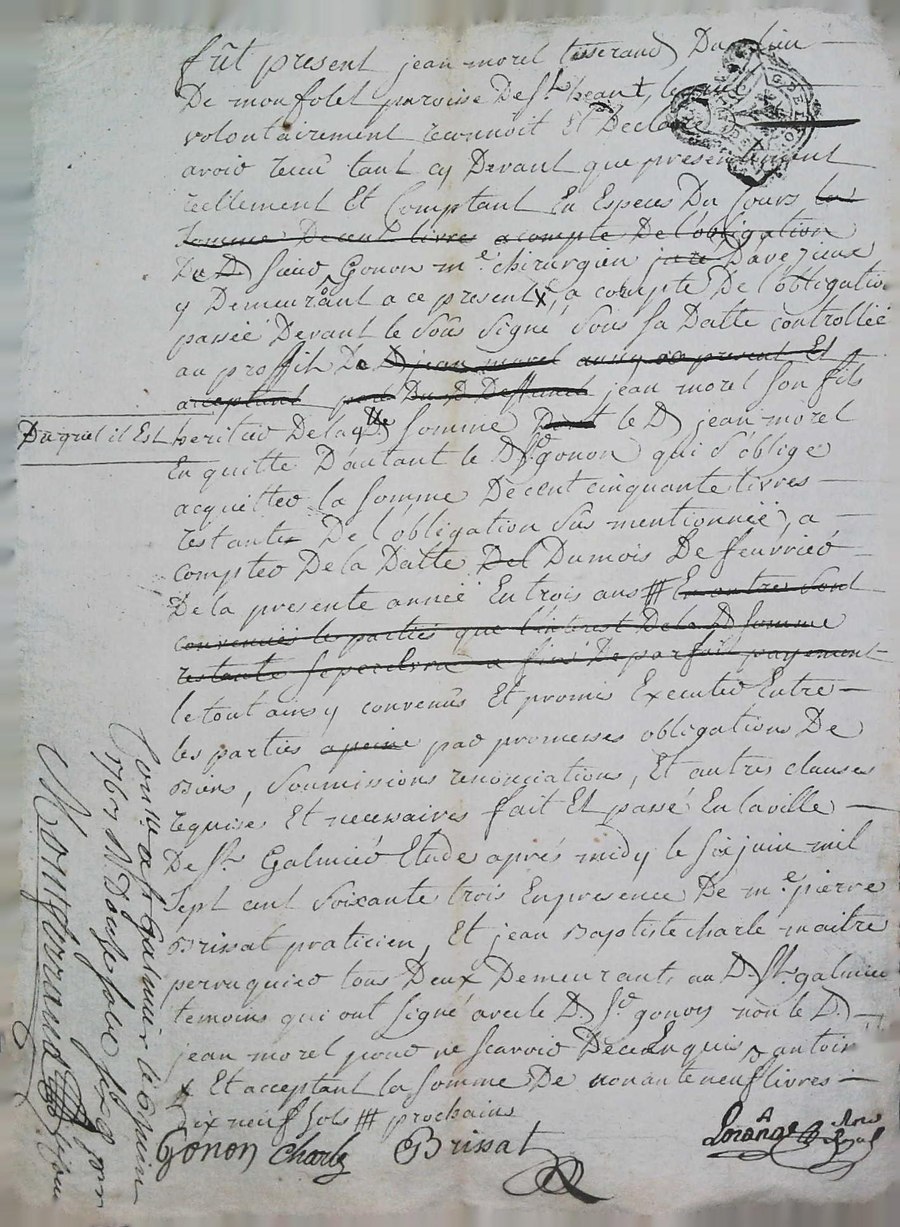 fut present jean morel tisserand Du lieu
De monfolet paroisse De St. heant, lequel
volontairement reconnoit Et Declare
avoir recu tant cy Devant que presentement
reellement Et Comptant En Especes Du Cours la
somme De cent livres acompte De l'obligation
Du D. sieur Gonon me. chirurgien juré Davezieux
y Demeurant a ce present X, a compte De l'obligation
passée Devant le soûs signé sous sa Datte controllée
au proffit De D jean morel aussy present Et
acceptant pour Du D Deffunct jean morel son fils
Duquel il Est heritier De laqlle somme Dont le D jean morel
En quitte Dautant le D. sr. gonon qui s'oblige
acquitter la somme De cent cinquante livres
restantes De l'obligation sus mentionnée, a
compter De la Datte Del Du mois De feuvrier
De la presente année En trois ans # En outre sont
convenües les parties que l'interest De la D somme
restante
le tout ainsy convenus Et promis Executer Entre
les parties a peine par promesses obligations De
Biens, soumissions renonciations, Et autres clauses
requises Et necessaires fait Et passé En la ville
De St. Galmier Etude aprés midy le six juin mil
sept cent soixante trois En presence De me. pierre
Brissat praticien, Et jean Baptiste charle maitre
perruquier tous Deux Demeurant, au D. St. galmier
temoins qui ont signé avec le D. sr. gonon non le D.
jean morel pour ne scavoir De ce Enquis
X Et acceptant la somme De nonante neuf livres
Dix neuf sols # prochains
Gonon Charle Brissat
Con.le a St Galmier le juin
1763
Montgorrand